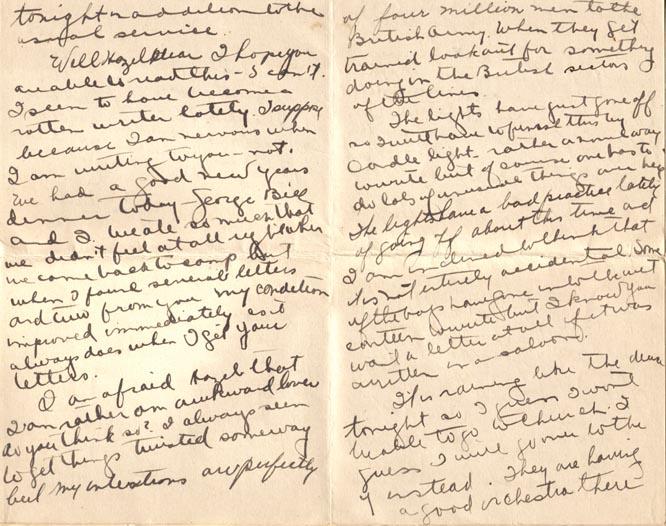 tonight in addition to the
usual service.
Well Hazel dear I hope you
are able to read this - I can't.
I seem to have become a
rotten writer lately. I suppose
because I am nervous when
I am writing to you - not.
We had a good new years
dinner today - George Bill
and I. We ate so much that
we didn't feel at all right when
we came back to camp but
when I found several letters
and two from you my condition
improved immediately as it
always does when I get your
letters.
I am afraid Hazel that
I am rather an awkward lover
do you think so? I always seem
to get things twisted someway
but my intentions are perfectly
of four million men to the
British Army. When they get
trained lookout for something
doing in the British sectors
of the lines.
The lights have just gone off
so I will have to finish this by
candle light - rather a way
to write but of course one has to
do lots of unusual things are here
The lights have a bad practice lately
of going off about this time and
I am inclined to think that
it is not entirely accidental. Some
of the boys have gone in to the wet
canteen to write but I know you
want a letter at all if it was
written in a saloon.
It is raining like the
tonight so I guess I won't
be able to go to church. I
guess I will go over to the
Y instead. They are having
a good orchestra there